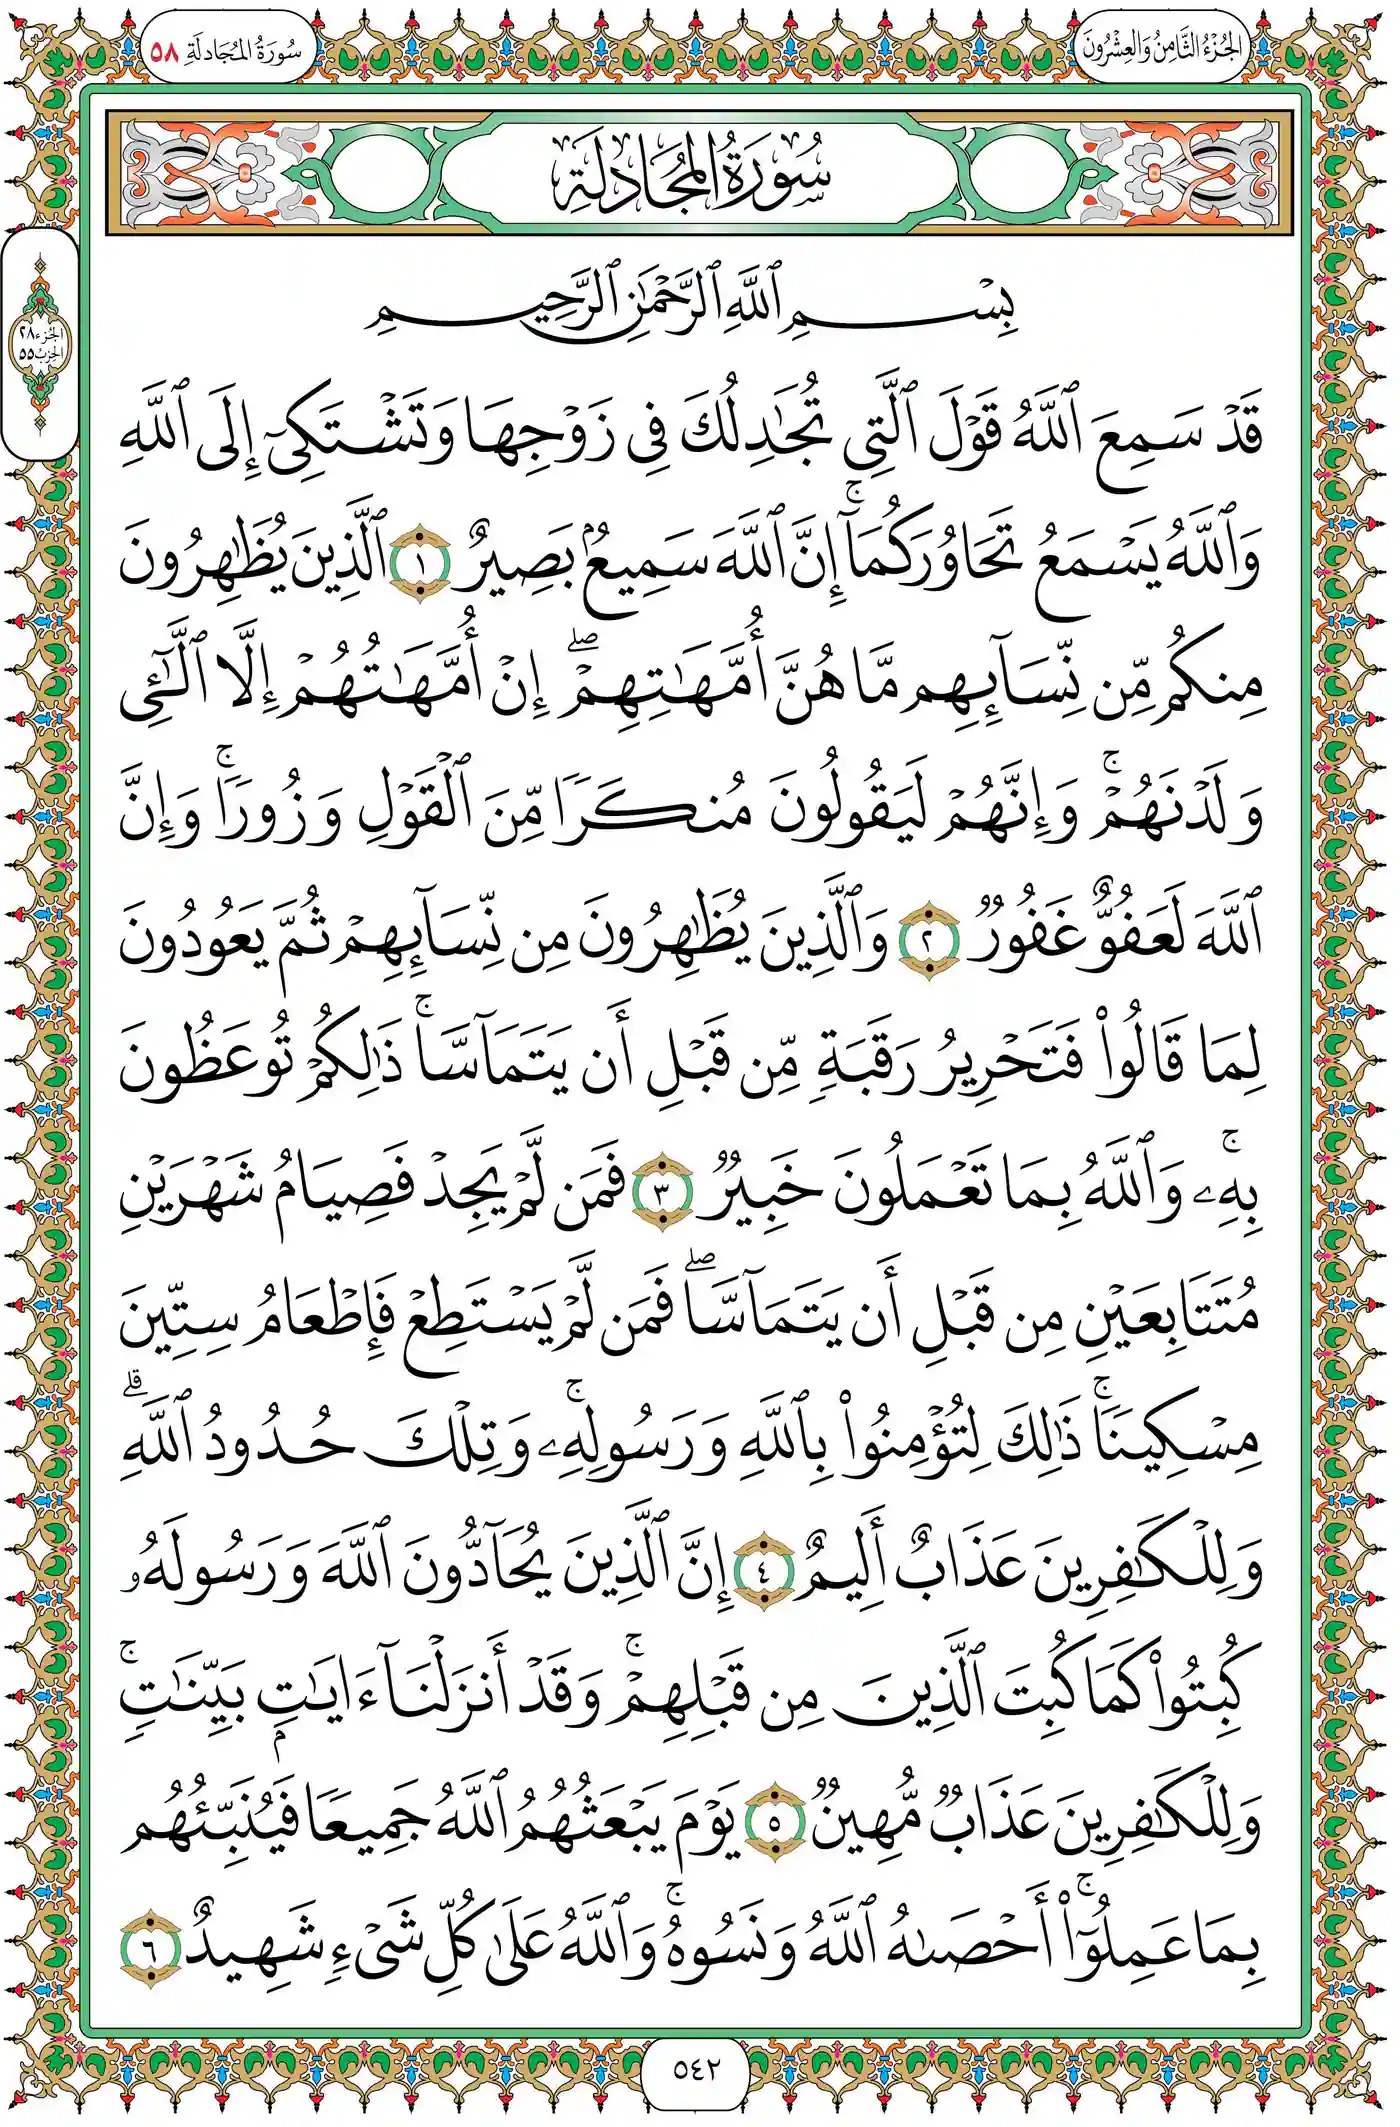 الجُزْءُ الثَّامِنُ وَالعِشْرُونَ
سُورَةُ المُجَادلَةِ ٥٨
سُورَةُ المُجَادلَةِ
الجزء ٢٨
الحزب ٥٥
بِسْمِ ٱللَّهِ ٱلرَّحْمَٰنِ ٱلرَّحِيمِ
قَدْ سَمِعَ ٱللَّهُ قَوْلَ ٱلَّتِى تُجَٰدِلُكَ فِى زَوْجِهَا وَتَشْتَكِىٓ إِلَى ٱللَّهِ
وَٱللَّهُ يَسْمَعُ تَحَاوُرَكُمَآ ۚ إِنَّ ٱللَّهَ سَمِيعٌۢ بَصِيرٌ ١ ٱلَّذِينَ يُظَٰهِرُونَ
مِنكُم مِّن نِّسَآئِهِم مَّا هُنَّ أُمَّهَٰتِهِمْ ۖ إِنْ أُمَّهَٰتُهُمْ إِلَّا ٱلَّٰٓـِٔى
وَلَدْنَهُمْ ۚ وَإِنَّهُمْ لَيَقُولُونَ مُنكَرًا مِّنَ ٱلْقَوْلِ وَزُورًا ۚ وَإِنَّ
ٱللَّهَ لَعَفُوٌّ غَفُورٌ ٢ وَٱلَّذِينَ يُظَٰهِرُونَ مِن نِّسَآئِهِمْ ثُمَّ يَعُودُونَ
لِمَا قَالُوا۟ فَتَحْرِيرُ رَقَبَةٍ مِّن قَبْلِ أَن يَتَمَآسَّا ۚ ذَٰلِكُمْ تُوعَظُونَ
بِهِۦ ۚ وَٱللَّهُ بِمَا تَعْمَلُونَ خَبِيرٌ ٣ فَمَن لَّمْ يَجِدْ فَصِيَامُ شَهْرَيْنِ
مُتَتَابِعَيْنِ مِن قَبْلِ أَن يَتَمَآسَّا ۖ فَمَن لَّمْ يَسْتَطِعْ فَإِطْعَامُ سِتِّينَ
مِسْكِينًا ۚ ذَٰلِكَ لِتُؤْمِنُوا۟ بِٱللَّهِ وَرَسُولِهِۦ ۚ وَتِلْكَ حُدُودُ ٱللَّهِ ۗ
وَلِلْكَٰفِرِينَ عَذَابٌ أَلِيمٌ ٤ إِنَّ ٱلَّذِينَ يُحَآدُّونَ ٱللَّهَ وَرَسُولَهُۥ
كُبِتُوا۟ كَمَا كُبِتَ ٱلَّذِينَ مِن قَبْلِهِمْ ۚ وَقَدْ أَنزَلْنَآ ءَايَٰتٍۭ بَيِّنَٰتٍ ۚ
وَلِلْكَٰفِرِينَ عَذَابٌ مُّهِينٌ ٥ يَوْمَ يَبْعَثُهُمُ ٱللَّهُ جَمِيعًا فَيُنَبِّئُهُم
بِمَا عَمِلُوٓا۟ ۚ أَحْصَىٰهُ ٱللَّهُ وَنَسُوهُ ۚ وَٱللَّهُ عَلَىٰ كُلِّ شَىْءٍ شَهِيدٌ ٦
٥٤٢